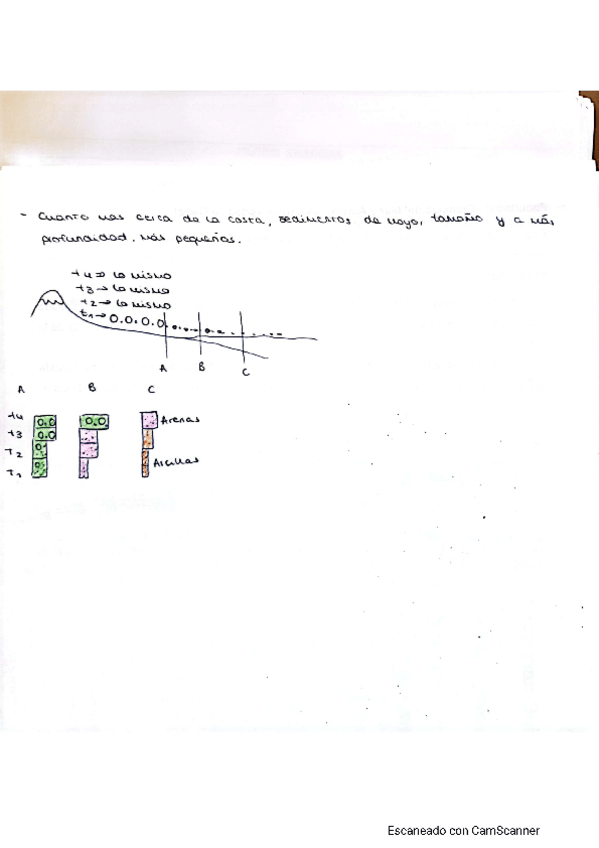 - Cuanto mas cerca de la costa, sedimentos de mayor tamaño y a más
profundidad, más pequeños.
t4 → lo mismo
t3 → lo mismo
t2 → lo mismo
t1 → O.O.O.O.
A B C
A B C
t4 Arenas
t3
t2 Arcillas
t1
Escaneado con CamScanner